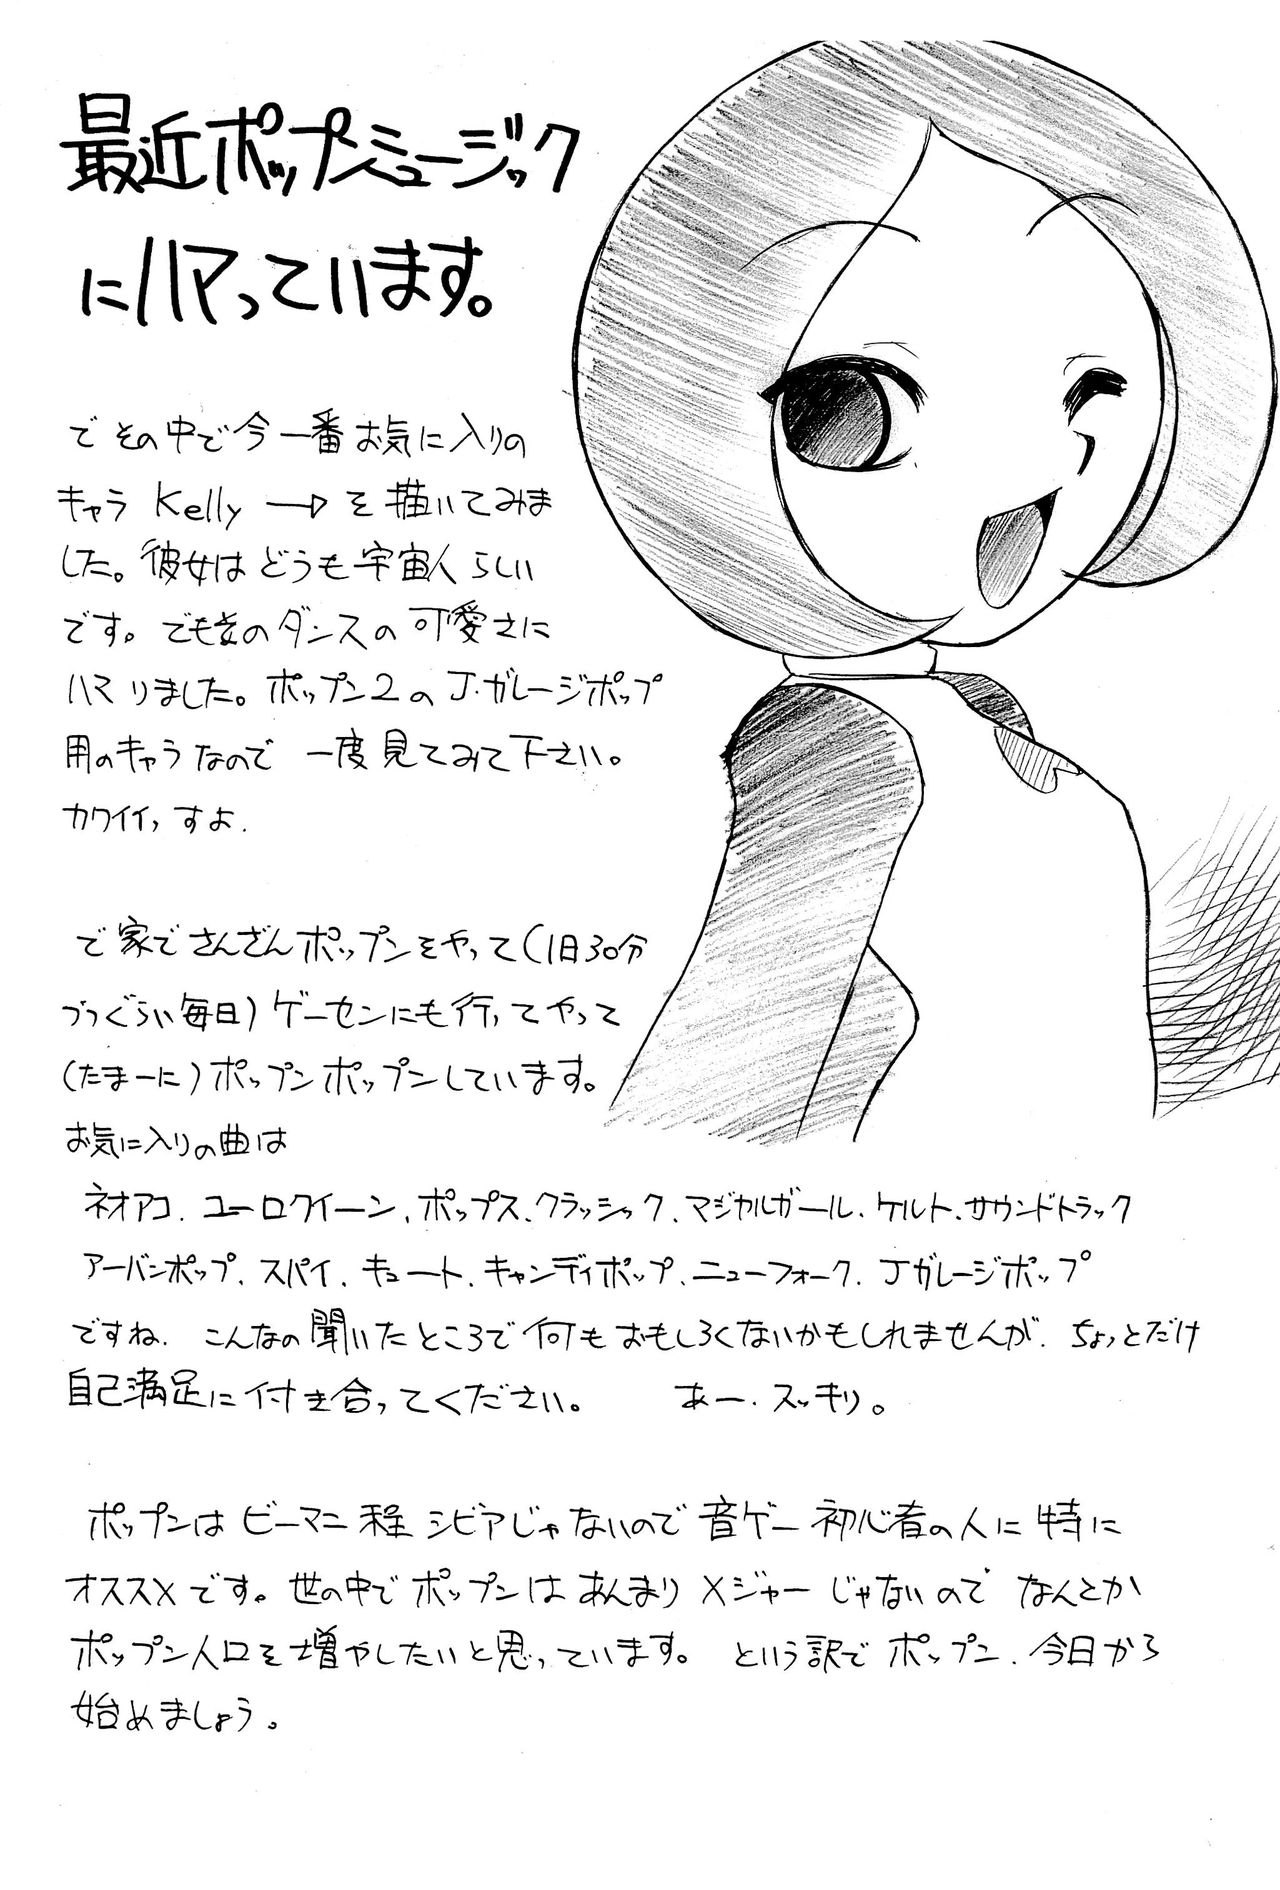 最近ポップンミュージック
にハマっています。
で その中で今一番お気に入りの
キャラ Kelly → を描いてみま
した。彼女はどうも宇宙人らしい
です。でも彼女のダンスの可愛さに
ハマりました。ポップン2のJ・ガレージポップ
用のキャラなので 一度見てみて下さい。
カワイイっすよ.
で家でさんざんポップンをやって(1日30分
づつぐらい毎日)ゲーセンにも行ってやって
(たまーに)ポップンポップンしています。
お気に入りの曲は
ネオアコ、ユーロクイーン、ポップス、クラッシック、マジカルガール、ケルト、サウンドトラック
アーバンポップ、スパイ、キュート、キャンディポップ、ニューフォーク、Jガレージポップ
ですね、こんなの聞いたところで何もおもしろくないかもしれませんが、ちょっとだけ
自己満足に付き合ってください。 あー、スッキリ。
ポップンはビーマニ程シビアじゃないので音ゲー初心者の人に特に
オススメです。世の中でポップンはあんまりメジャーじゃないので なんとか
ポップン人口を増やしたいと思っています。 という訳でポップン、今日から
始めましょう。